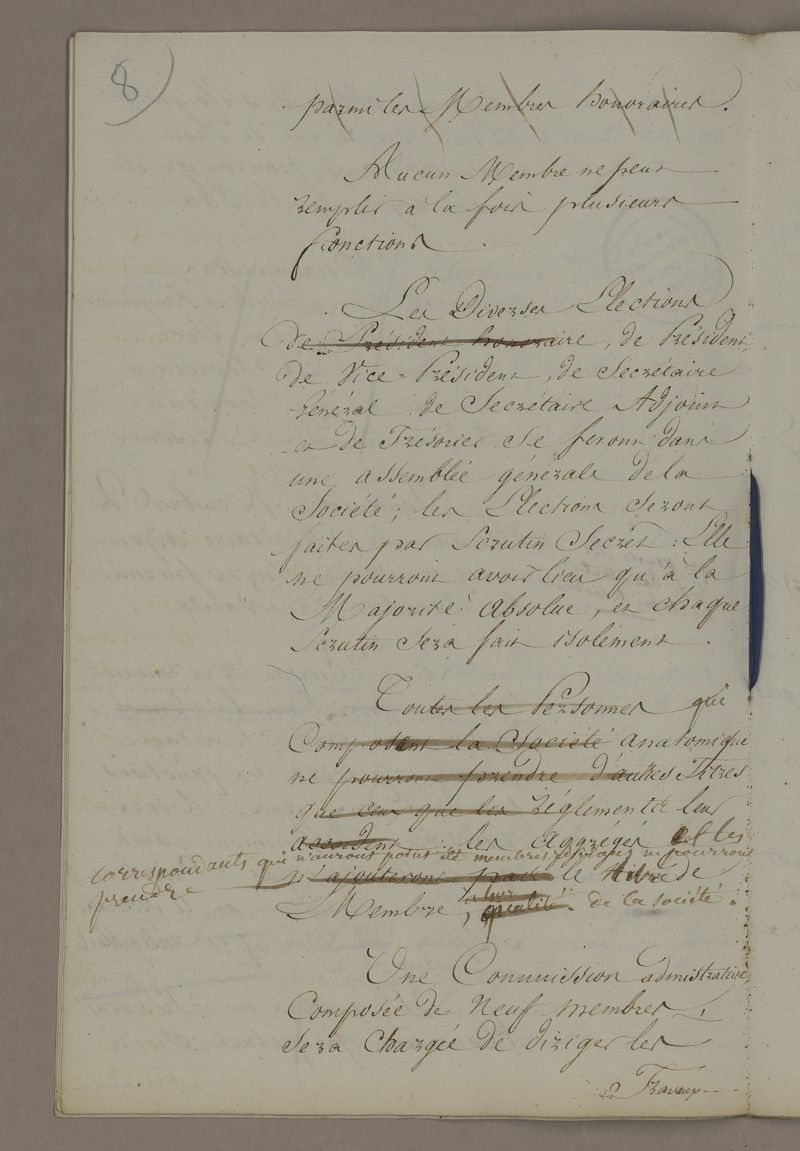 8
parmi les Membres honoraires.
Aucun Membre ne peut
remplir à la fois plusieurs
fonctions.
Les Diverses Elections
de Président honoraire, de Président
de Vice-Président, de Secrétaire
Général, de Secrétaire Adjoint
et de Trésorier se feront dans
une assemblée générale de la
Société; les Elections seront
faites par Scrutin Secret: Elle
ne pourront avoir lieu qu'à la
Majorité absolue, et chaque
Scrutin sera fait isolément.
Toutes les Personnes qui
Composent la Société anatomique
ne pourront prendre d'autres Titres
que ceux que les règlements leur
accordent les Aggrégés et les
correspondants qui n'auront point été membres ne pourront
prendre
n'ajouteront pas le titre de
à leur
Membre, qualité de la société.
Une Commission administrative
Composée de Neuf membres,
sera Chargée de diriger les
Travaux